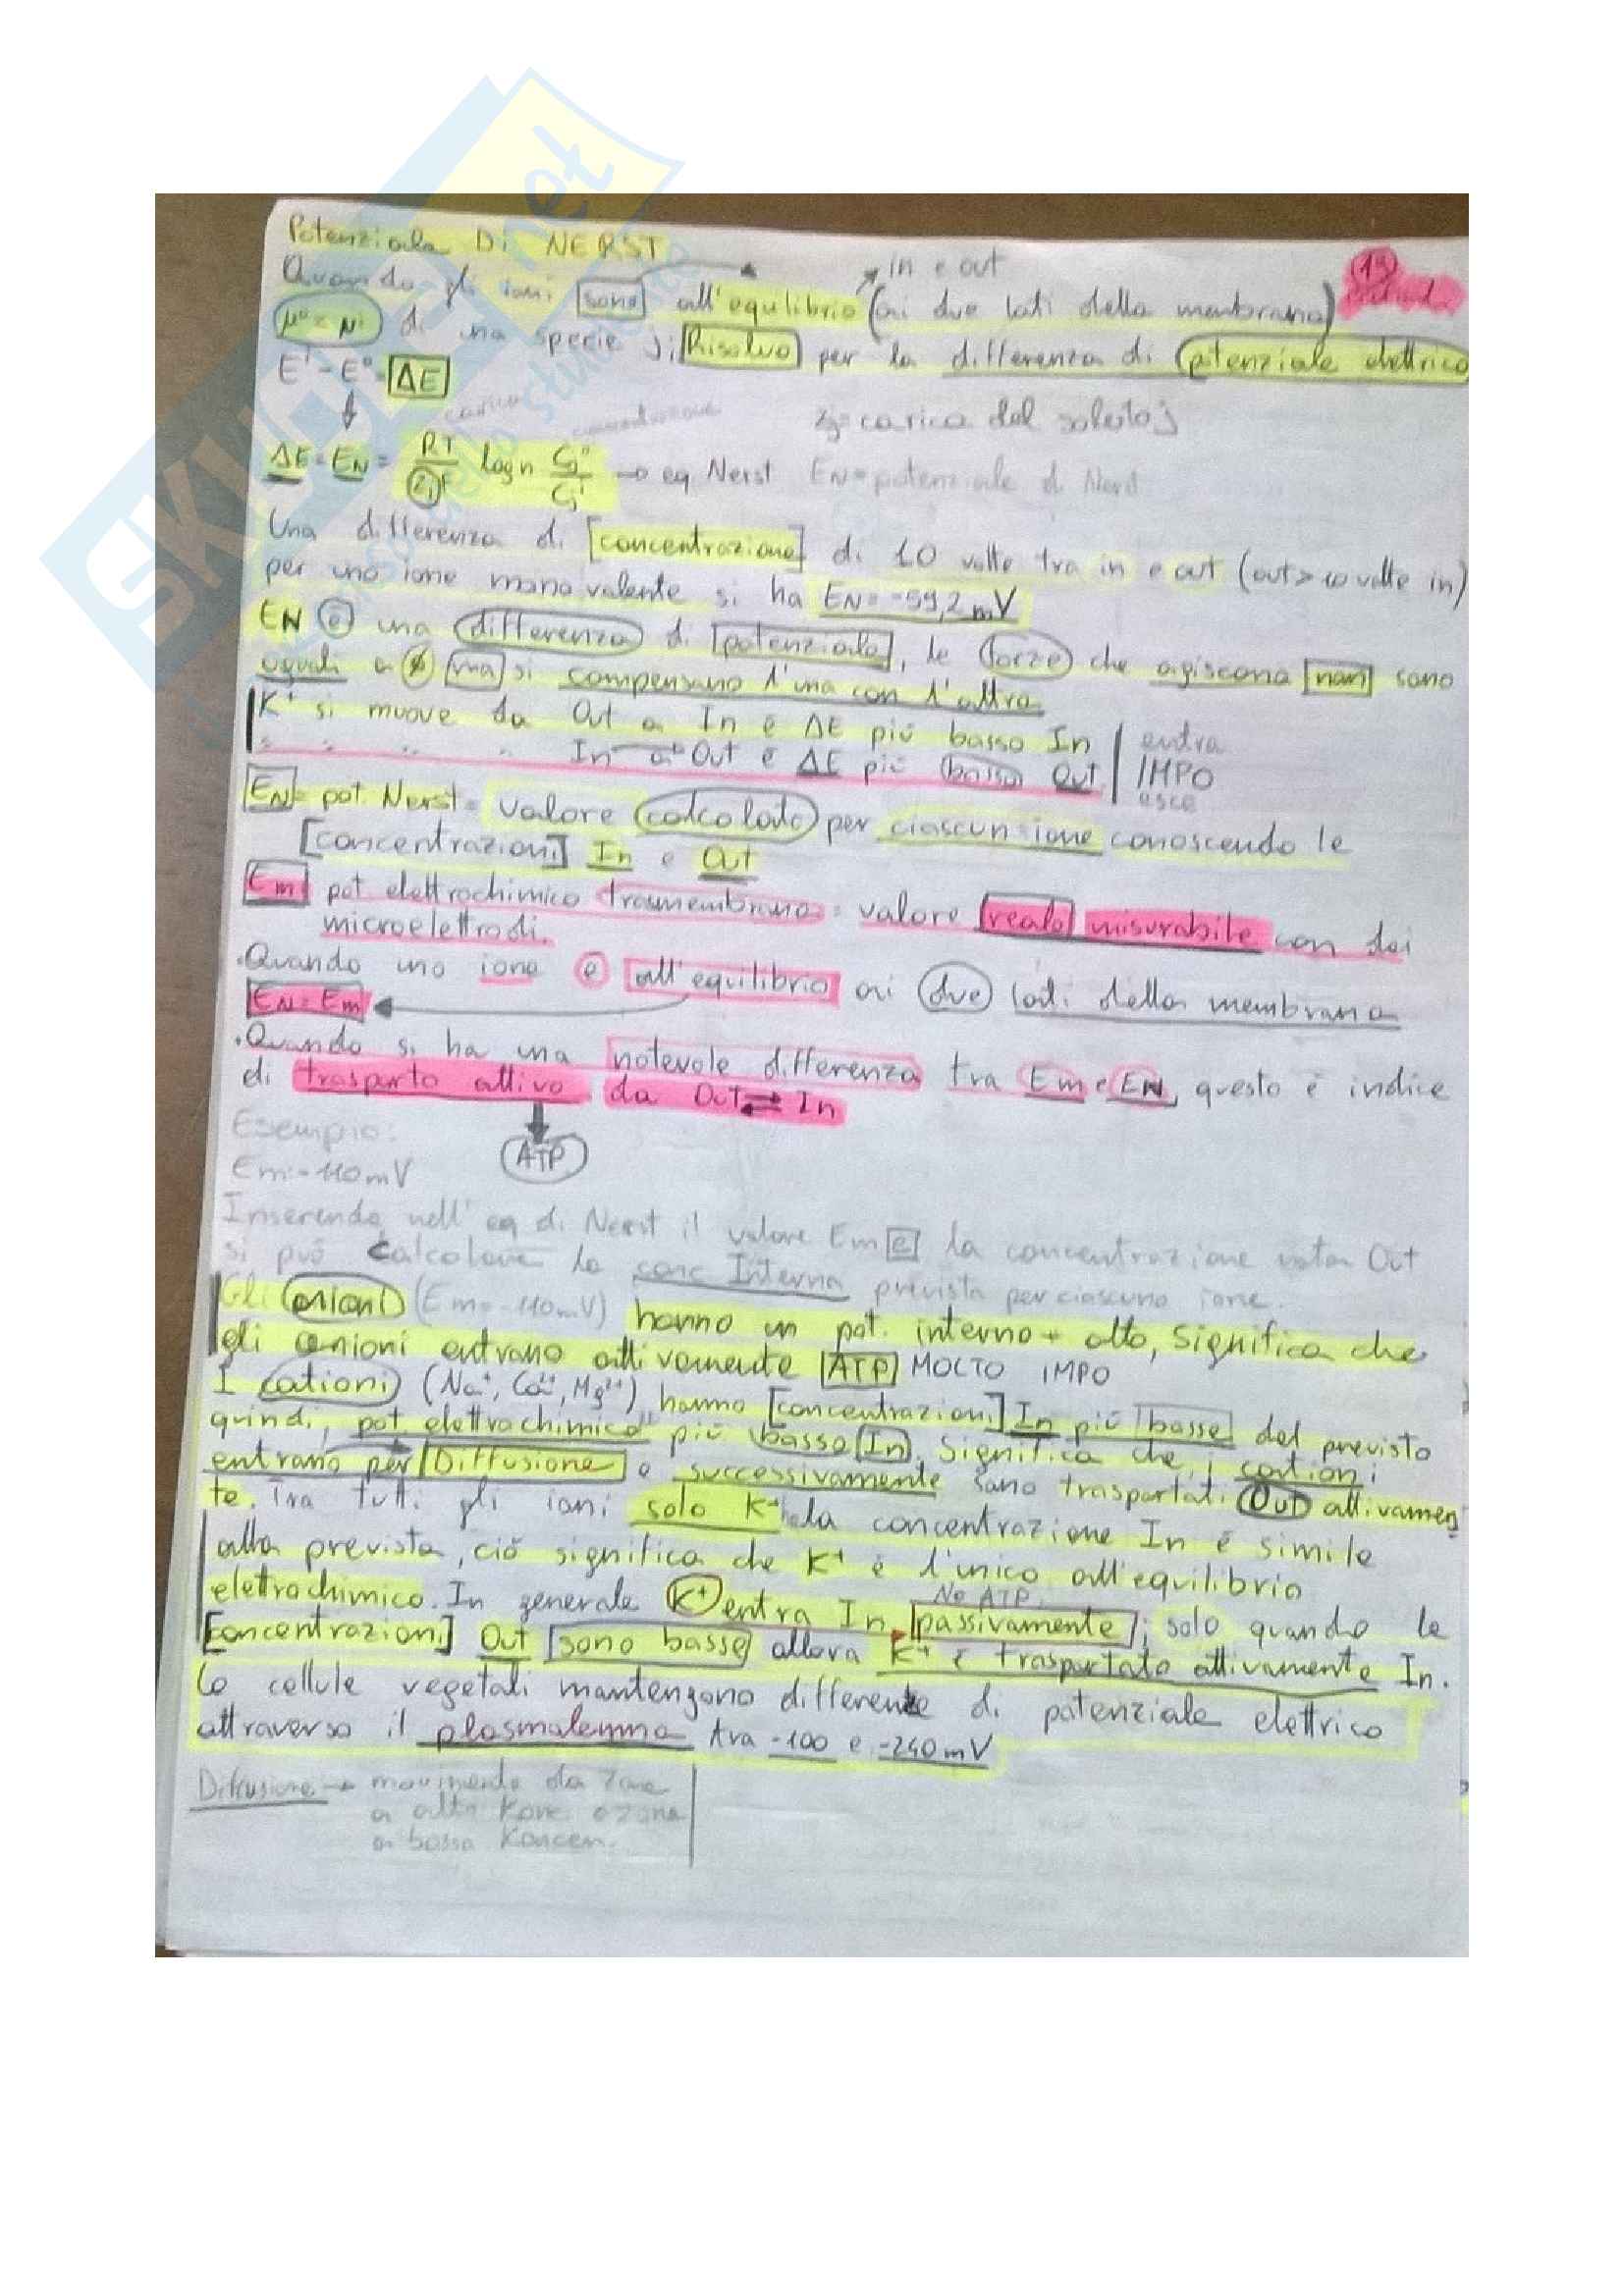 Potenziale Di NERST
in e out
19
Quando gli ioni sono all'equilibrio (ai due lati della membrana)
μº = μi di una specie j, Risolvo per la differenza di potenziale elettrico
Ei - Eº = ΔE
carica concentrazione zj = carica del soluto j
ΔE = EN = RT/zjF logn Cjº/Cji → eq Nerst EN = potenziale di Nerst
Una differenza di [concentrazione] di 10 volte tra in e out (out > 10 volte in)
per uno ione monovalente si ha EN = -59,2 mV
EN è una differenza di potenziale, le forze che agiscono non sono
uguali a ∅ ma si compensano l'una con l'altra
K⁺ si muove da Out a In è ΔE più basso In entra
" " " " In a Out è ΔE più basso Out IMPO
esce
EN = pot. Nerst = valore calcolato per ciascun ione conoscendo le
[concentrazioni] In e Out
Em pot elettrochimico trasmembrana = valore reale misurabile con dei
microelettrodi.
.Quando uno ione è all'equilibrio ai due lati della membrana
EN = Em
.Quando si ha una notevole differenza tra Em e EN, questo è indice
di trasporto attivo da Out ⇄ In
Esempio:
ATP
Em = -110 mV
Inserendo nell'eq di Nerst il valore Em e la concentrazione nota Out
si può calcolare la conc Interna prevista per ciascuno ione.
Gli anioni (Em = -110mV) hanno un pot. interno + alto, significa che
gli anioni entrano attivamente ATP MOLTO IMPO
I cationi (Na⁺, Ca²⁺, Mg²⁺) hanno [concentrazioni] In più basse del previsto
quindi, pot elettrochimico più basso In, significa che i cationi
entrano per Diffusione e successivamente sono trasportati Out attivamen
te. Tra tutti gli ioni solo K⁺ ha la concentrazione In è simile
alla prevista, ciò significa che K⁺ è l'unico all'equilibrio
elettrochimico. In generale K⁺ entra In passivamente; solo quando le
No ATP
[concentrazioni] Out sono basse allora K⁺ è trasportato attivamente In.
Le cellule vegetali mantengono differenze di potenziale elettrico
attraverso il plasmalemma tra -100 e -240 mV
Diffusione → movimento da zone
a alta Konc. a zona
a bassa Koncen.